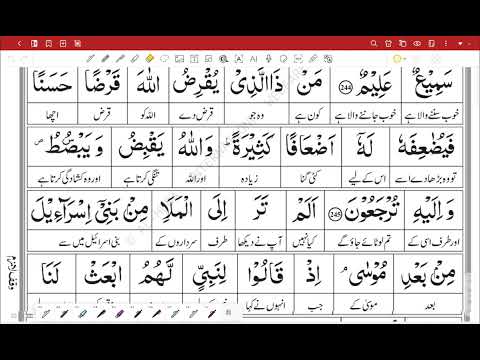 سَمِيْعٌ عَلِيْمٌ ﴿244﴾ مَنْ ذَا الَّذِيْ يُقْرِضُ اللّٰهَ قَرْضًا حَسَنًا
خوب سننے والا ہے خوب جاننے والا ہے کون ہے وہ جو قرض دے اللہ کو قرض اچھا
فَيُضٰعِفَهٗ لَهٗٓ اَضْعَافًا كَثِيْرَةً ؕ وَاللّٰهُ يَقْبِضُ وَيَبْصُۜطُ ۪
تو وہ بڑھا دے اسے اس کے لیے کئی گنا زیادہ اور اللہ تنگی کرتا ہے اور وہ کشادگی کرتا ہے
وَاِلَيْهِ تُرْجَعُوْنَ ﴿245﴾ اَلَمْ تَرَ اِلَى الْمَلَاِ مِنْۢ بَنِيْٓ اِسْرَآءِيْلَ
اور طرف اسی کے تم لوٹائے جاؤ گے کیا نہیں آپ نے دیکھا طرف سرداروں کے بنی اسرائیل میں سے
مِنْۢ بَعْدِ مُوْسٰى ۘ اِذْ قَالُوْا لِنَبِيٍّ لَّهُمُ ابْعَثْ لَنَا
بعد موسیٰ کے جب انہوں نے کہا